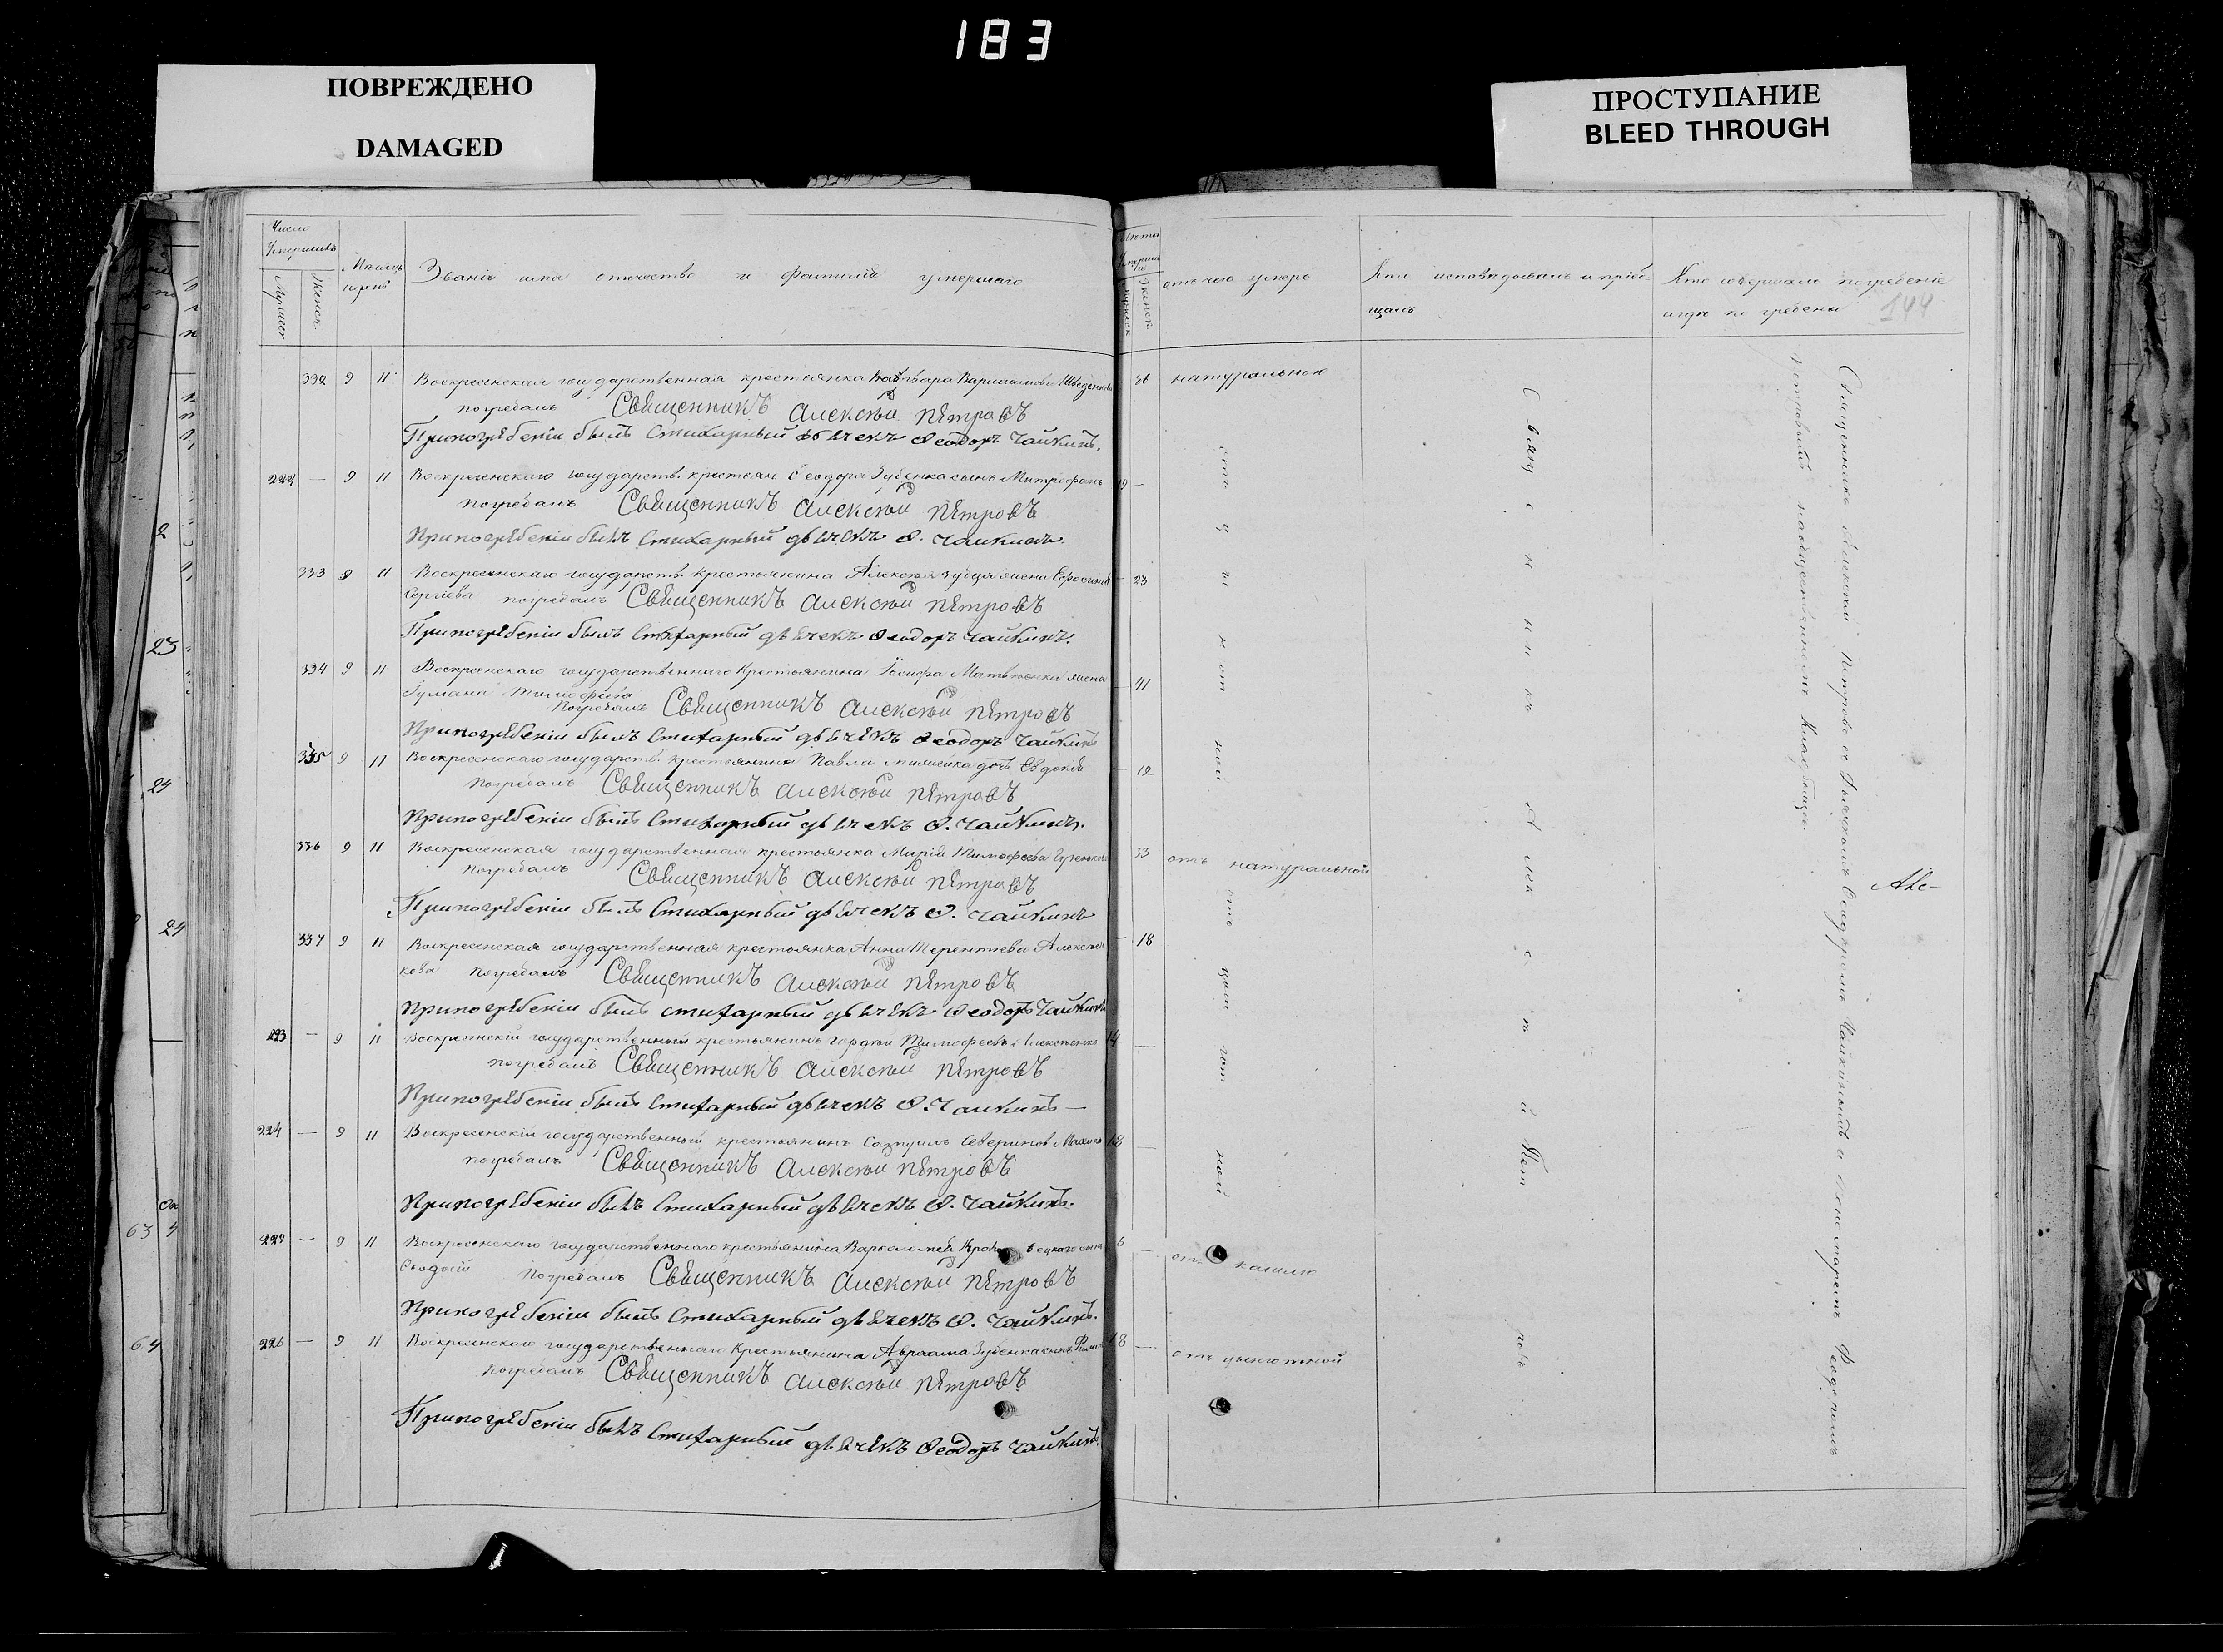 183
ПОВРЕЖДЕНО
DAMAGED
ПРОСТУПАНИЕ
BLEED THROUGH
Число Умершихъ
Мужеск
Женск.
Званіе имя отечество и фамилія умершаго
Лета
Женск.
отъ чего умеръ
Кто исповѣдовалъ и пріобщалъ
Кто совершалъ погребеніе и где погребены
144
332 9 11 Воскресенская государственная крестьянка Варвара Варламова 26 натуральною
погребалъ Священникъ Алексѣй Петровъ
При погребеніи былъ Стихарный дьячекъ Ѳеодоръ Чайкинъ.
222 — 9 11 Воскресенскаго государств. крестьян Ѳеодора Зубенка сынъ Митрофанъ
погребалъ Священникъ Алексѣй Петровъ
При погребеніи былъ Стихарный дьячекъ Ѳ. Чайкинъ.
333 9 11 Воскресенскаго государств. крестьянина Алексѣя Зубца жена Ефросинія 23
Сергіева погребалъ Священникъ Алексѣй Петровъ
При погребеніи былъ Стихарный дьячекъ Ѳеодоръ Чайкинъ.
334 9 11 Воскресенскаго государственнаго крестьянина Іосифа жена 41
Тимофеева
погребалъ Священникъ Алексѣй Петровъ
При погребеніи былъ Стихарный дьячекъ Ѳеодоръ Чайкинъ
335 9 11 Воскресенскаго государств. крестьянина Павла дочь Евдокія 12
погребалъ Священникъ Алексѣй Петровъ
При погребеніи былъ Стихарный дьячекъ Ѳ. Чайкинъ.
336 9 11 Воскресенская государственная крестьянка Марія Тимофеева 33 отъ натуральной
погребалъ Священникъ Алексѣй Петровъ
При погребеніи былъ Стихарный дьячекъ Ѳ. Чайкинъ
337 9 11 Воскресенская государственная крестьянка Анна Терентьева Алексѣен 18
кова погребалъ Священникъ Алексѣй Петровъ
При погребеніи былъ стихарный дьячекъ Ѳеодоръ Чайкинъ
223 — 9 11 Воскресенскій государственный крестьянинъ Гордѣй Тимофеевъ Алексѣенко 14 —
погребалъ Священникъ Алексѣй Петровъ
При погребеніи былъ Стихарный дьячекъ Ѳ. Чайкинъ —
224 — 9 11 Воскресенскій государственный крестьянинъ Северинов —
погребалъ Священникъ Алексѣй Петровъ
При погребеніи былъ Стихарный дьячекъ Ѳ. Чайкинъ.
225 — 9 11 Воскресенскаго государственнаго крестьянина Варѳоломея 6 — отъ кашлю
погребалъ Священникъ Алексѣй Петровъ
При погребеніи былъ Стихарный дьячекъ Ѳ. Чайкинъ.
226 — 9 11 Воскресенскаго государственнаго крестьянина Авраама Зубенка сынъ 18 — отъ цынготной
погребалъ Священникъ Алексѣй Петровъ
При погребеніи былъ Стихарный дьячекъ Ѳеодоръ Чайкинъ.
отъ цынготной
отъ цынготной
Священникъ Алексѣй Петровъ
Священникъ Алексѣй Петровъ съ Дьячкомъ Ѳеодоромъ Чайкинымъ и